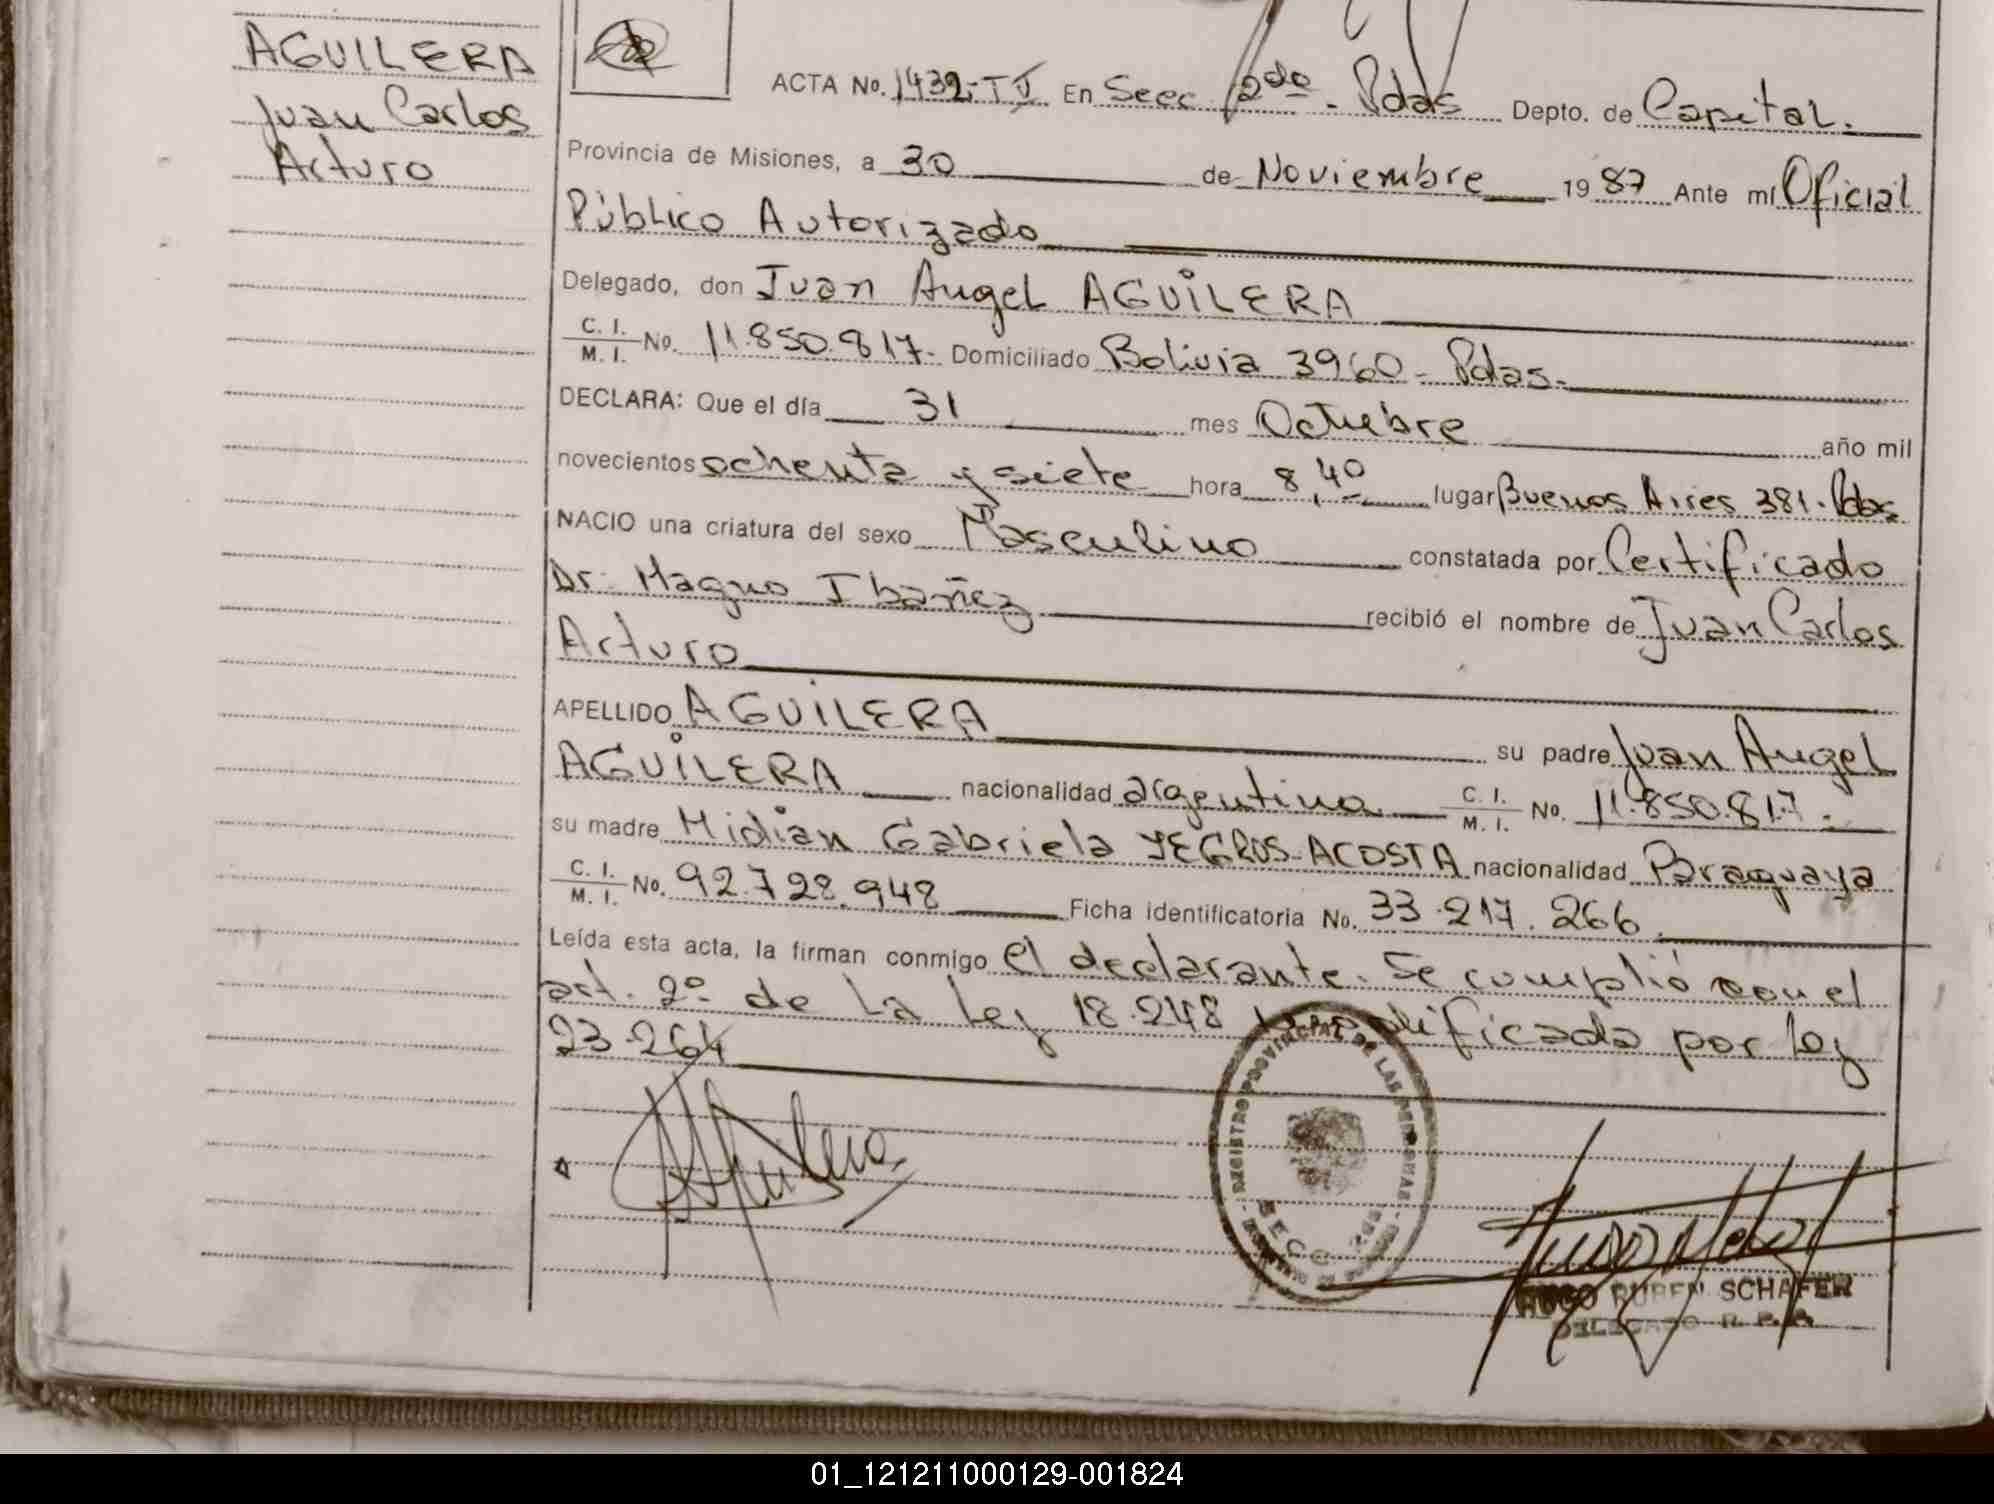 AGUILERA
Juan Carlos
Arturo
ACTA No. 1432-TV En Secc 2da - Pdas Depto. de Capital.
Provincia de Misiones, a 30 de Noviembre 1987 Ante mí Oficial
Público Autorizado
Delegado, don Juan Angel AGUILERA
C. I. / M. I. No. 11.850.817- Domiciliado Bolivia 3960 - Pdas.
DECLARA: Que el día 31 mes Octubre año mil
novecientos ochenta y siete hora 8,40 lugar Buenos Aires 381. Pdas
NACIO una criatura del sexo Masculino constatada por Certificado
Dr. Magno Ibañez recibió el nombre de Juan Carlos
Arturo
APELLIDO AGUILERA su padre Juan Angel
AGUILERA nacionalidad argentina C. I. / M. I. No. 11.850.817.
su madre Midian Gabriela YEGROS ACOSTA nacionalidad Paraguaya
C. I. / M. I. No. 92.728.948 Ficha identificatoria No. 33.217.266
Leída esta acta, la firman conmigo el declarante. Se cumplió con el
art. 2º de la Ley 18.248 modificada por Ley
23.264
REGISTRO PROVINCIAL DE LAS PERSONAS
SECC
HUGO RUBEN SCHAFER
DELEGADO R. P. P.
01_121211000129-001824